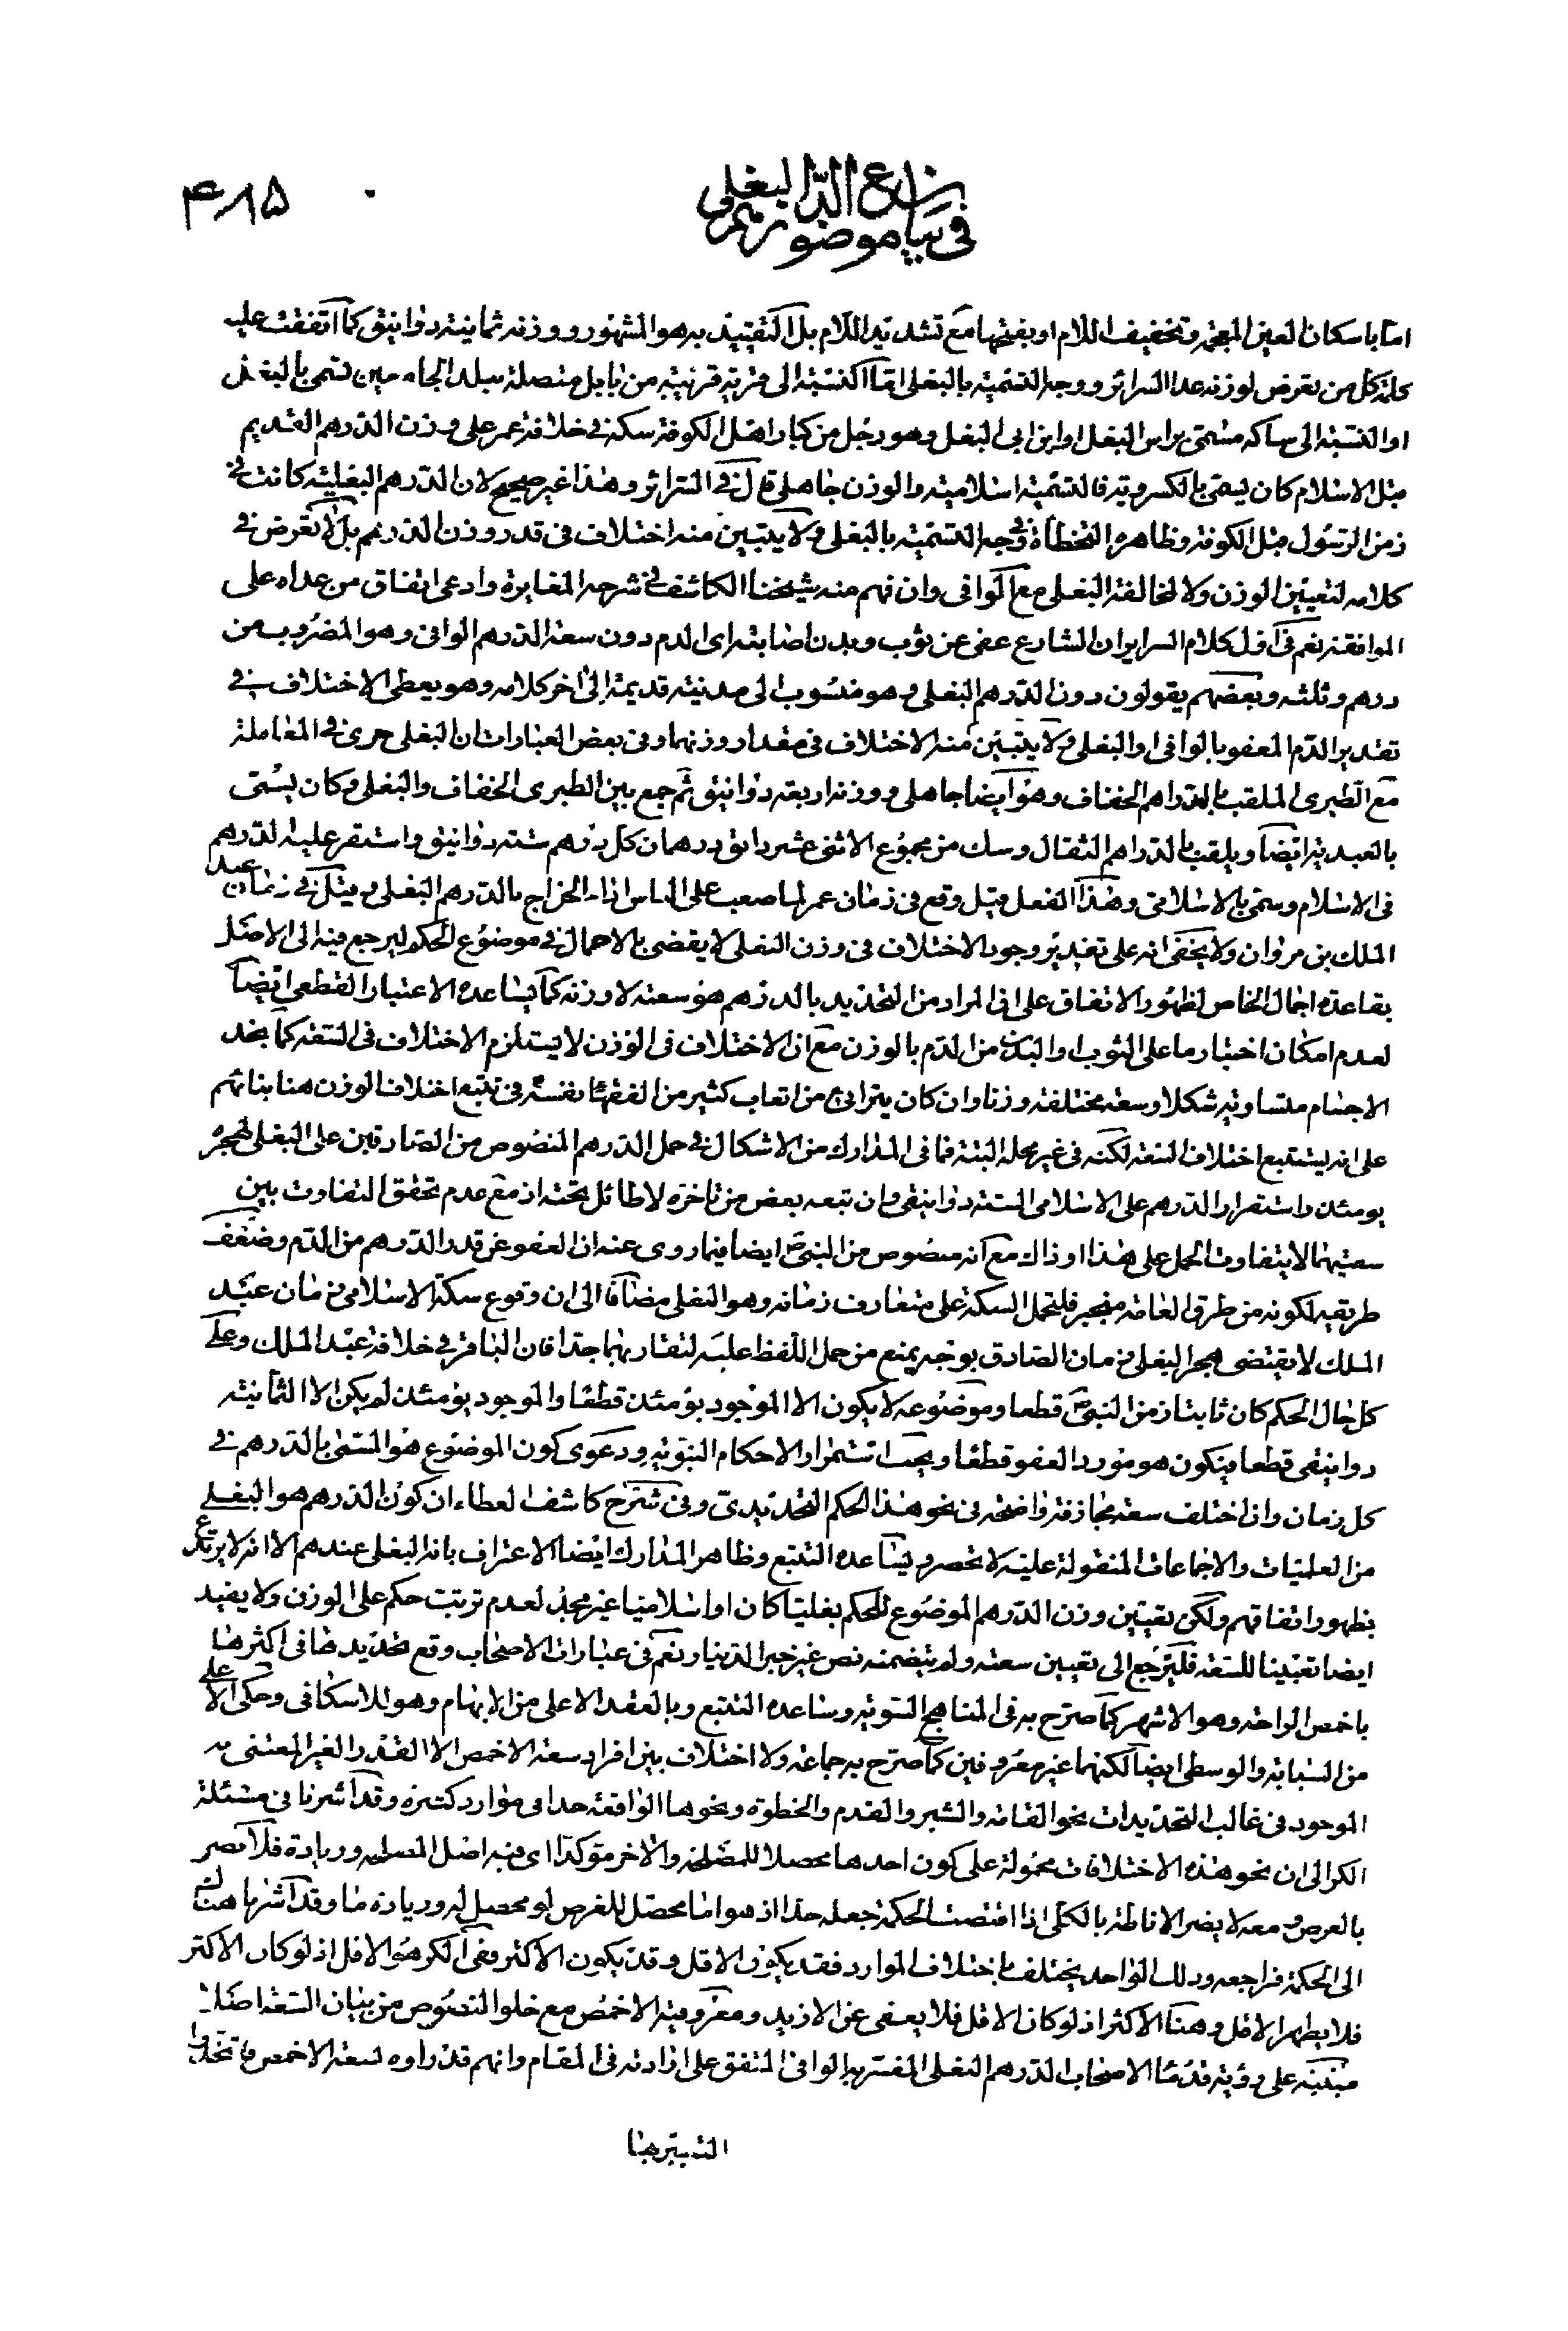 ۴۸۵
في بيان موضوع الدرهم البغلي
امّا باسكان الغين المعجمة وتخفيف اللام او بفتحها مع تشديد اللام بل التقييد به هو المشهور ووزنه ثمانية دوانيق كما اتفقت عليه
كلمة كل من تعرض لوزنه عدا السرائر ووجه التسمية بالبغلي امّا النسبة الى قرية قريبة من بابل متصلة ببلد الجامعين تسمى بالبغل
او النسبة الى سكه مسمّى براس البغل او ابن ابي البغل وهو رجل من كبار اهل الكوفة سكه في خلافة عمر على وزن الدرهم القديم
قبل الاسلام كان يسمى بالكسروية فالتسمية اسلامية والوزن جاهلي قال في السرائر وهذا غير صحيح لان الدراهم البغلية كانت في
زمن الرسول قبل الكوفة وظاهره التخطأة في وجه التسمية بالبغلي ولا يتبين منه اختلاف في قدر وزن الدرهم بل لا تعرض في
كلامه لتعيين الوزن ولا لمخالفة البغلي مع الوافي وان فهم منه شيخنا الكاشف في شرحه المغايرة وادعى اتفاق من عداه على
الموافقة نعم في اول كلام السراير ان الشارع عفى عن ثوب وبدن اصابته اى الدم دون سعة الدرهم الوافي وهو المضروب من
درهم وثلثه وبعضهم يقولون دون الدرهم البغلي وهو منسوب الى مدينة قديمة الى اخر كلامه وهو يعطى الاختلاف في
تقدير الدم المعفو بالوافي او البغلي ولا يتبين منه الاختلاف في مقدار وزنهما وفي بعض العبارات ان البغلي جرى في المعاملة
مع الطبرى الملقب بالدراهم الخفاف وهو ايضا جاهلي ووزنه اربعة دوانيق ثم جمع بين الطبرى الخفاف والبغلي وكان يسمّى
بالعبدية ايضا ويلقب بالدراهم الثقال وسك من مجموع الاثنى عشر دانق درهمان كل درهم ستة دوانيق واستقر عليه الدرهم
في الاسلام وسمى بالاسلامي وهذا الفعل قيل وقع في زمان عمر لما صعب على الناس اداء الخراج بالدرهم البغلي وقيل في زمان عبد
الملك بن مروان ولا يخفى انه على تقدير وجود الاختلاف في وزن البغلي لا يقضى بالاجمال في موضوع الحكم ليرجع فيه الى الاصل
بقاعدة اجمال الخاص لظهور الاتفاق على ان المراد من التحديد بالدرهم هو سعته لا وزنه كما يساعده الاعتبار القطعي ايضا
لعدم امكان اختبار ما على الثوب او البدن من الدم بالوزن مع ان الاختلاف في الوزن لا يستلزم الاختلاف في السعة كما نجد
الاجسام متساوية شكلا وسعة مختلفة وزنا وان كان يترائى من اتعاب كثير من الفقهاء نفسه في تتبع اختلاف الوزن هنا بنائهم
على انه يستتبع اختلاف السعة لكنه في غير محله البتة فما في المدارك من الاشكال في حمل الدرهم المنصوص من الصادقين على البغلي لهجره
يومئذ واستقرار الدرهم على الاسلامي الستة دوانيقي وان تبعه بعض من تاخره لا طائل تحته اذ مع عدم تحقق التفاوت بين
سعتيهما لا يتفاوت الحمل على هذا او ذاك مع انه منصوص من النبي ص ايضا فيما روى عنه ان العفو عن قدر الدرهم من الدم وضعف
طريقه لكونه من طرق العامة منجبر فليحمل السكة على متعارف زمانه وهو البغلي مضافا الى ان وقوع سكة الاسلامي في زمان عبد
الملك لا يقتضى هجر البغلي في زمان الصادق بوجه يمنع من حمل اللفظ عليه لتقاربهما جدا فان الباقر في خلافة عبد الملك وعلى
كل حال الحكم كان ثابتا زمن النبي ص قطعا وموضوعه لا يكون الا الموجود يومئذ قطعا والموجود يومئذ لم يكن الا الثمانية
دوانيقى قطعا فيكون هو مورد العفو قطعا ويجب استمرار الاحكام النبوية ودعوى كون الموضوع هو المسمى بالدرهم في
كل زمان وان اختلف سعة مجازفة واضحة في نحو هذا الحكم التحديدى وفي شرح كاشف الغطاء ان كون الدرهم هو البغلي
من العلميات والاجماعات المنقولة عليه لا تحصر ويساعده التتبع وظاهر المدارك ايضا الاعتراف بانه البغلي عندهم الا انه لا يرتدع
بظهور اتفاقهم ولكن تعيين وزن الدرهم الموضوع للحكم بغليا كان او اسلاميا غير مجد لعدم ترتب حكم على الوزن ولا يفيد
ايضا تعيينا للسعة فليرجع الى تعيين سعته ولم يتضمنه نص غير خبر الدينار نعم في عبارات الاصحاب وقع تحديدها في اكثرها
باخمص الراحة وهو الاشهر كما صرح به في المناهج السوية وساعده التتبع وبالعقد الاعلى من الابهام وهو للاسكافي وحكى الاعلى
من السبابة والوسطى ايضا لكنهما غير معروفين كما صرح به جماعة ولا اختلاف بين افراد سعة الاخمص الا القدر الغير المعتنى به
الموجود في غالب التحديدات نحو القامة والشبر والقدم والخطوة ونحوها الواقعة حدا في موارد كثيرة وقد اشرنا في مسئلة
الكر الى ان نحو هذه الاختلافات محمولة على كون احدها محصلا للمصلحة والاخر مؤكدا اى فيه اصل المصلحة وزيادة فلا يضر
بالغرض ومعه لا يضر الاناطة بالكلي اذا اقتضت الحكمة جعله حدا اذ هو اما محصل للغرض او محصل له وزيادة ما وقد اشرنا هناك
الى الحكمة فراجعه وذلك الواحد يختلف باختلاف الموارد فقد يكون الاقل وقد يكون الاكثر وفي الكر هو الاقل اذ لو كان الاكثر
فلا يطهر الاقل وهنا الاكثر اذ لو كان الاقل فلا يعفى عن الازيد ومعروفية الاخمص مع خلو النصوص من بيان السعة اصلا
مبتنية على رؤية قدماء الاصحاب الدرهم البغلي المفسر بالوافي المتفق على ارادته في المقام وانهم قد راوه لسعة الاخمص